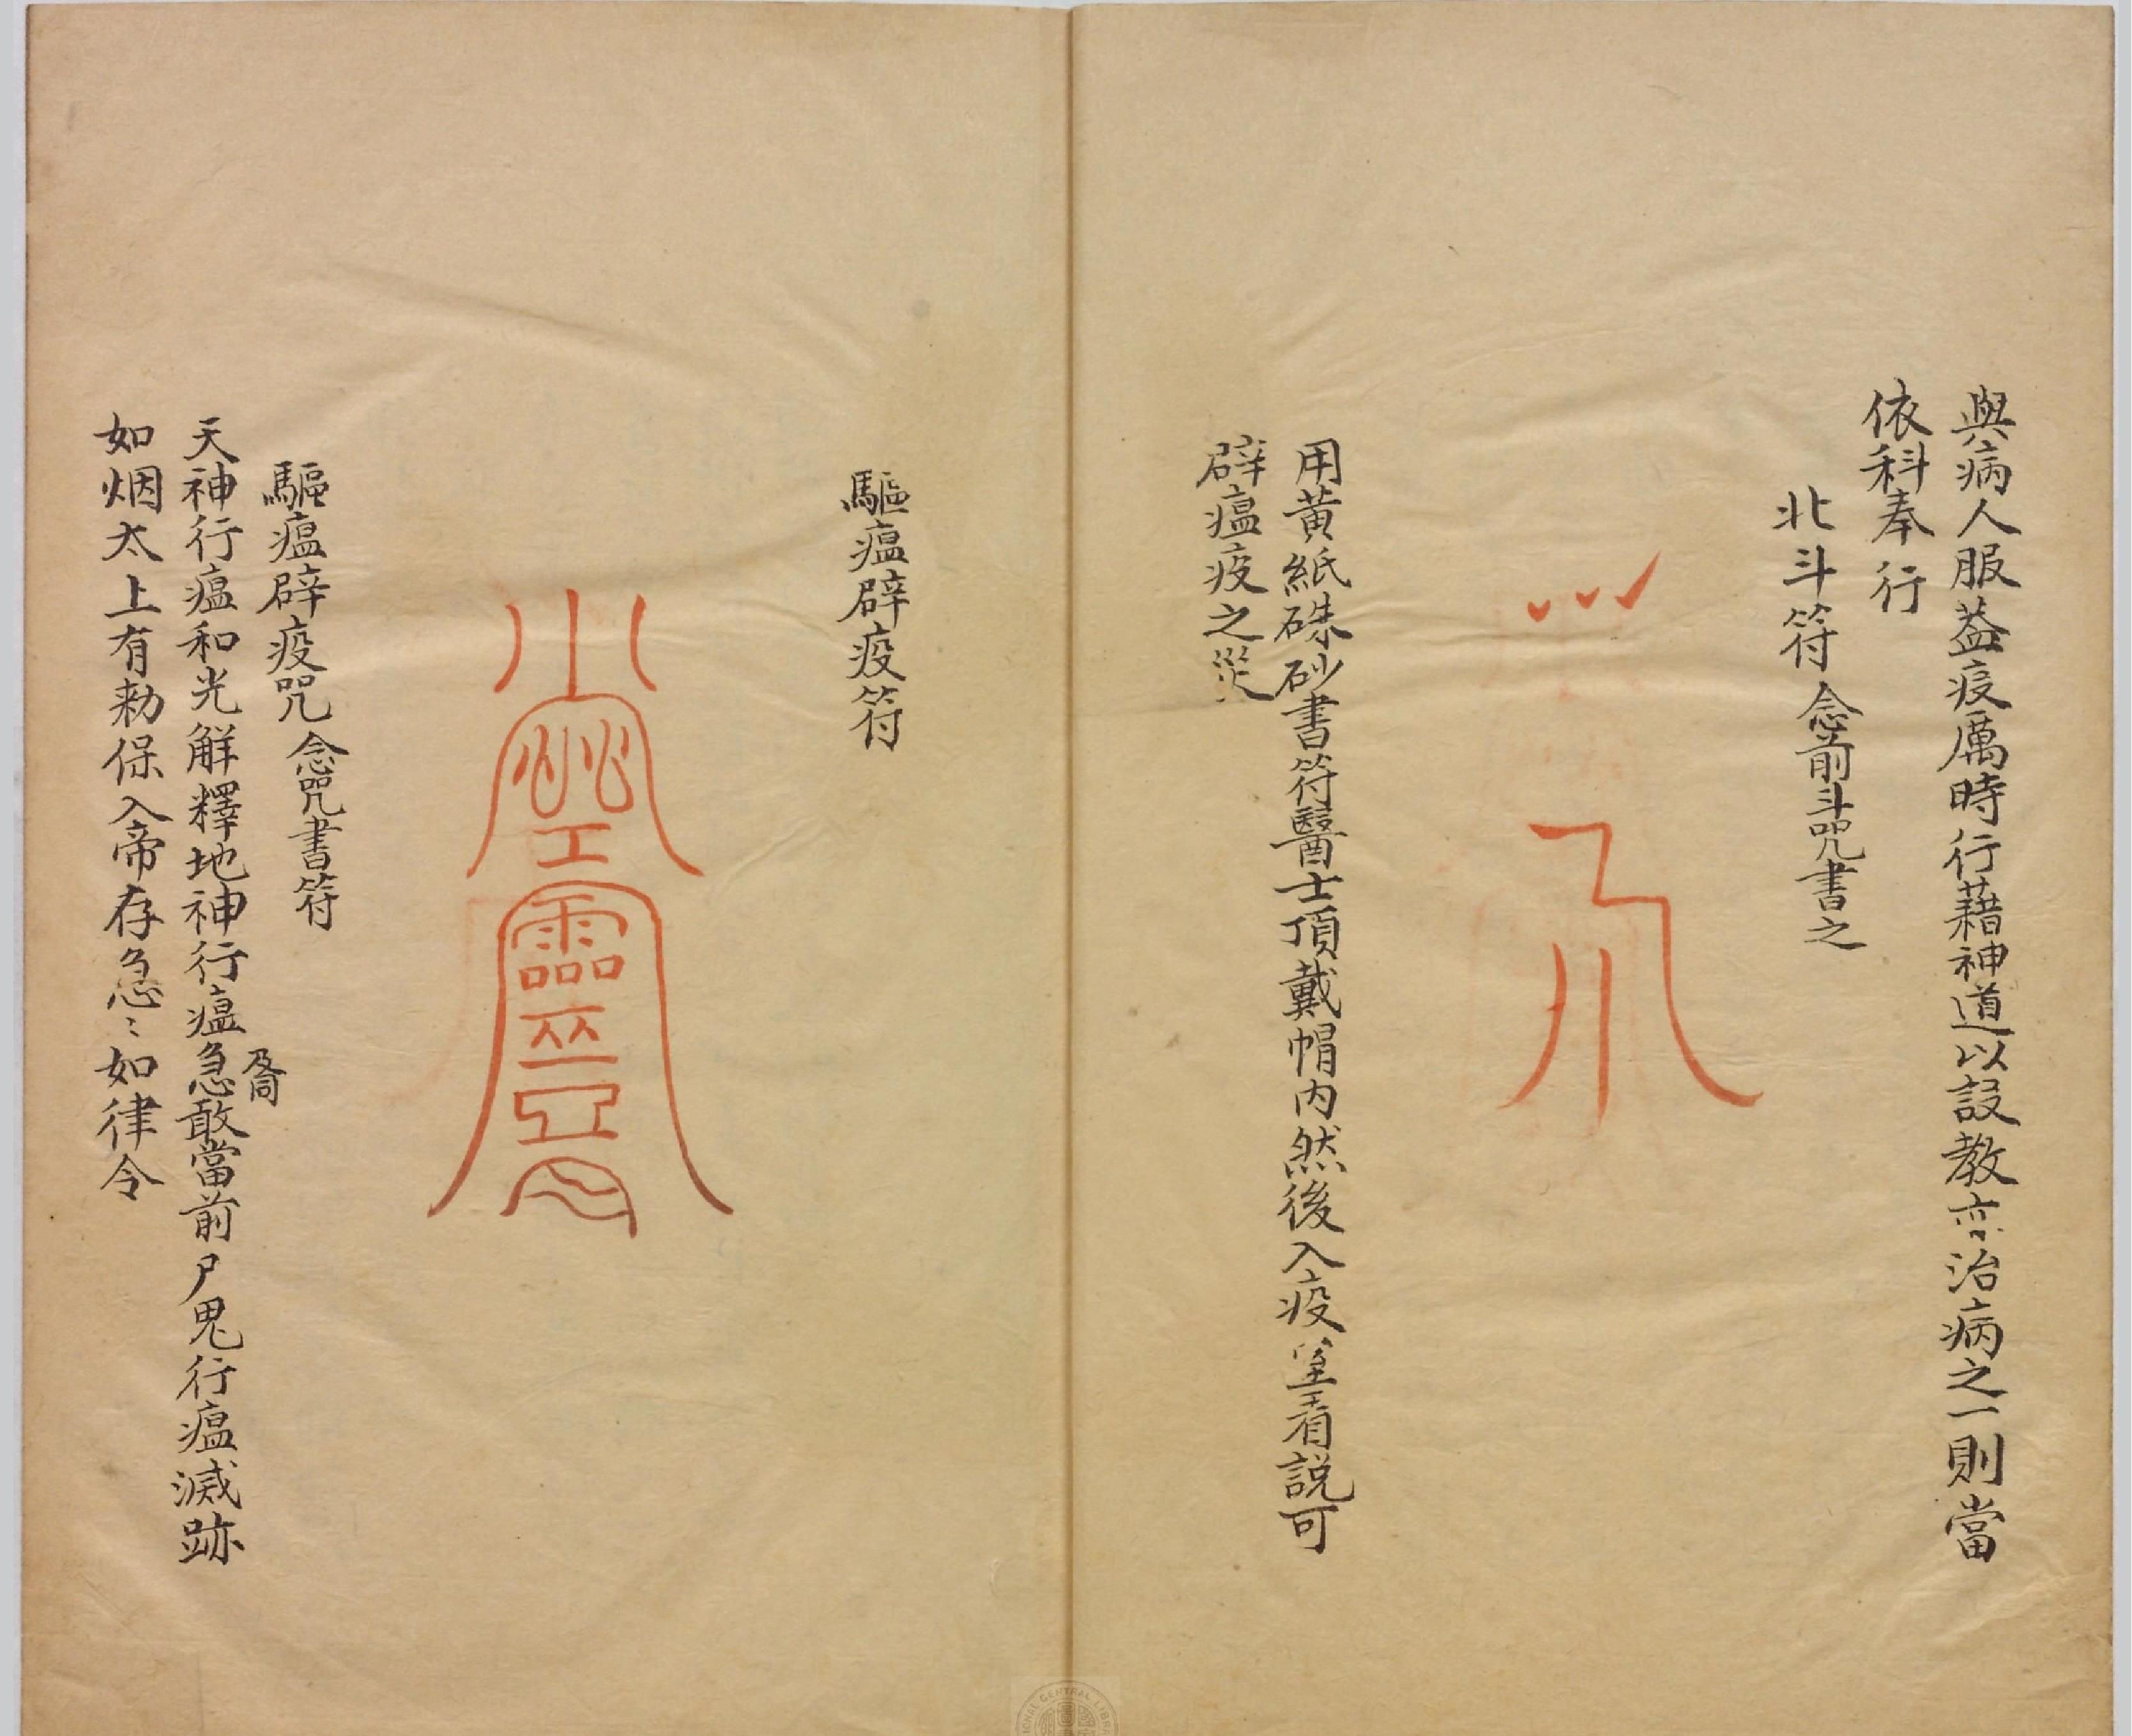 與病人服葢疫厲時行藉神道以設教亦治病之一則當
依科奉行
北斗符 念前斗咒書之
用黄紙硃砂書符醫士頂戴帽内然後入疫室看説可
辟瘟疫之災
驅瘟辟疫符
驅瘟辟疫咒 念咒書符
天神行瘟和光解釋地神行瘟急敢當前尸鬼行瘟滅跡
如烟太上有勅保入帝存急〻如律令